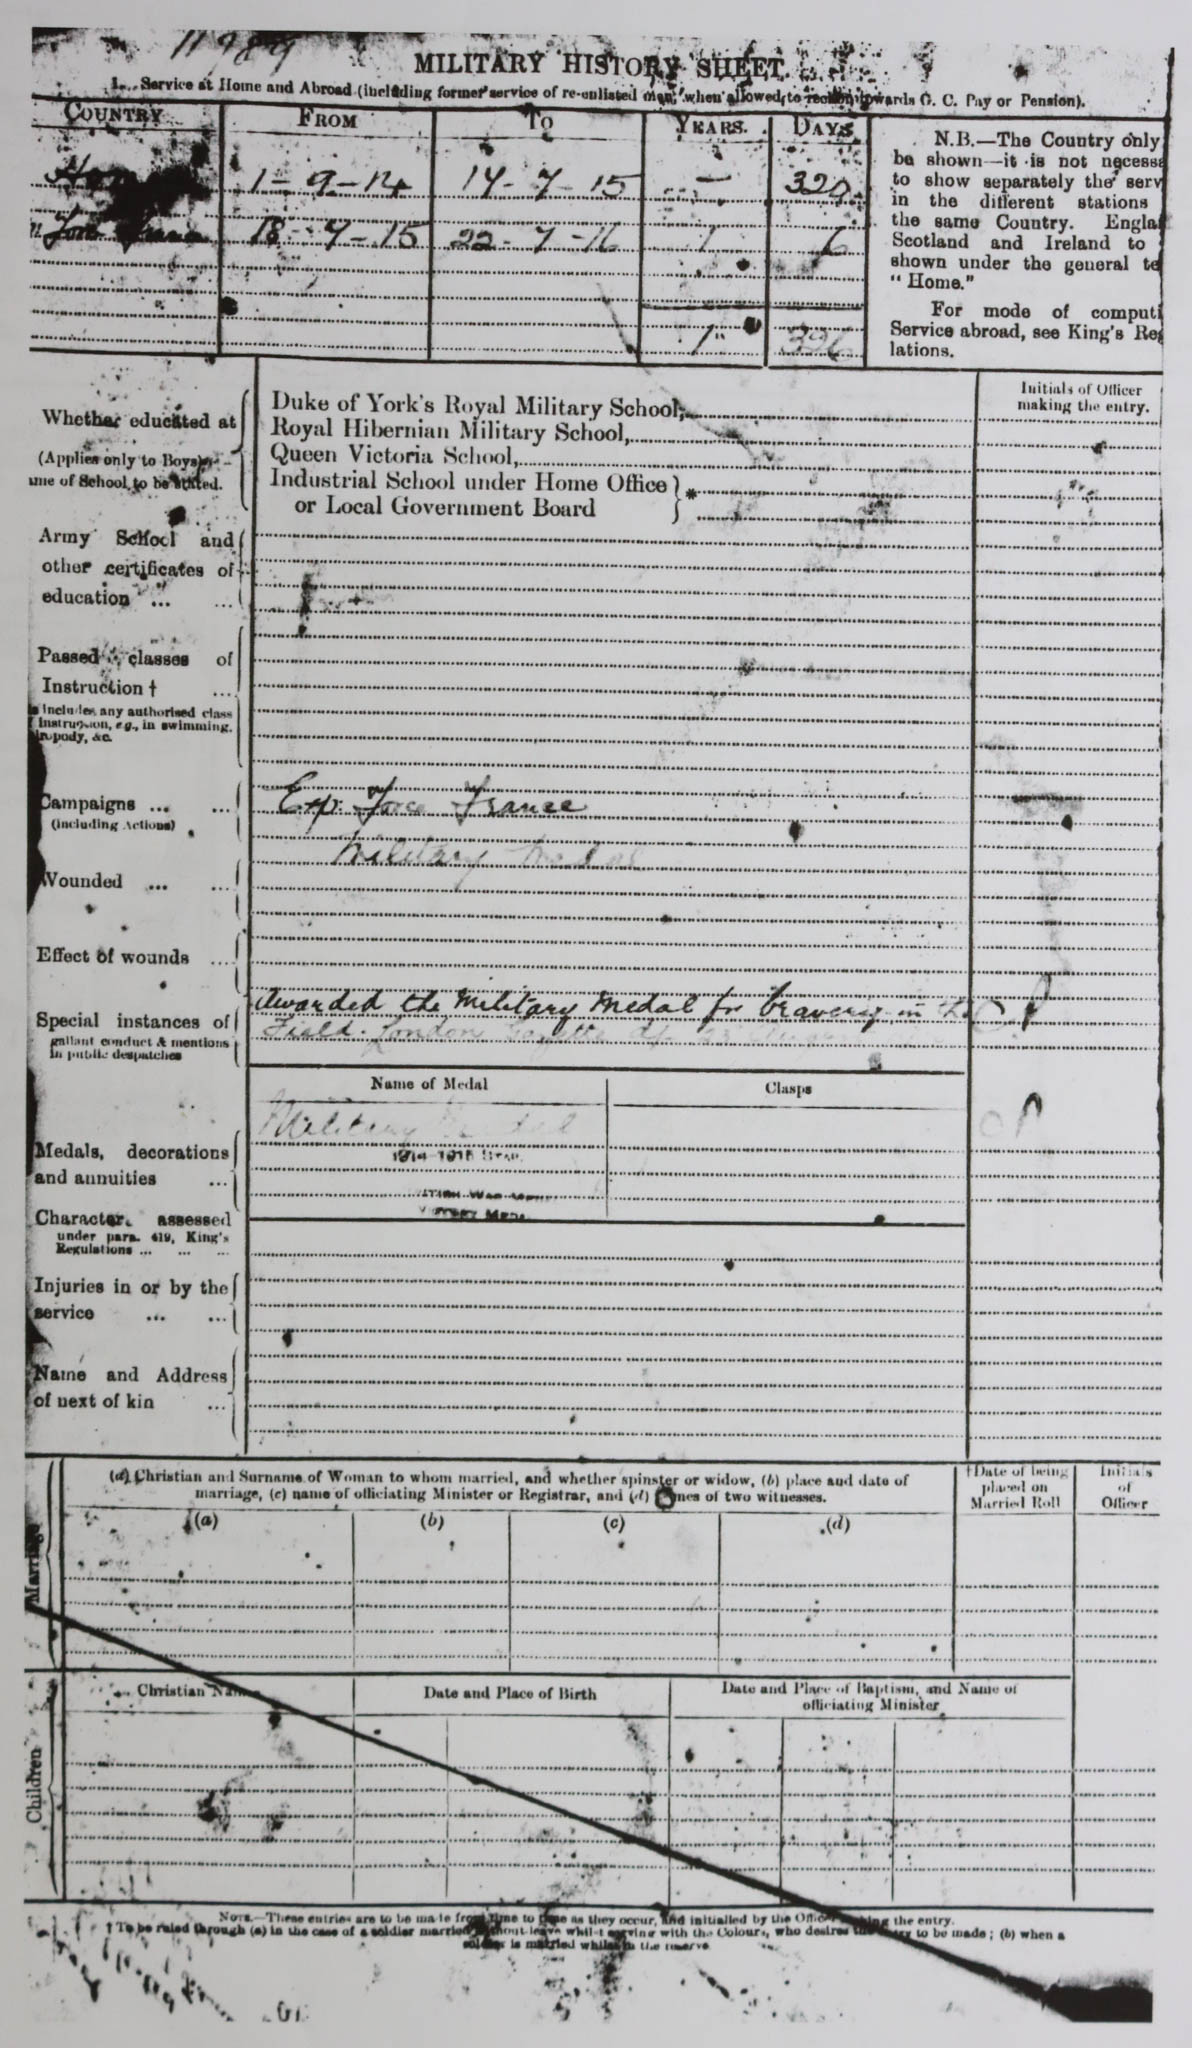 11989
MILITARY HISTORY SHEET.
1. Service at Home and Abroad (including former service of re-enlisted men, when allowed to reckon towards G. C. Pay or Pension).
COUNTRY FROM TO YEARS. DAYS
Hom 1-9-14 17-7-15 - 320
Force France 18-7-15 22-7-16 1 6
1 326
N.B.—The Country only
be shown—it is not necess
to show separately the serv
in the different stations
the same Country. Engla
Scotland and Ireland to
shown under the general te
"Home."
For mode of computi
Service abroad, see King's Reg
lations.
Initials of Officer
making the entry.
Whether educated at
(Applies only to Boys)
me of School to be stated.
Duke of York's Royal Military School,
Royal Hibernian Military School,
Queen Victoria School,
Industrial School under Home Office
or Local Government Board } *
Army School and
other certificates of
education ... ...
Passed classes of
Instruction † ...
includes any authorised class
Instruction, e.g., in swimming,
ropody, &c.
Campaigns ... ...
(including Actions)
Exp: Force France
Military Medal
Wounded ... ...
Effect of wounds ...
Special instances of
gallant conduct & mentions
in public despatches
Awarded the Military Medal for bravery in
Field. London Gazette d/- 23 August
Name of Medal Clasps
Military Medal
1914-1915 Star
Medals, decorations
and annuities ...
War
Victory Meda
Character assessed
under para. 419, King's
Regulations ... ... ...
Injuries in or by the
service ... ...
Name and Address
of next of kin ...
Marriage
(a) Christian and Surname of Woman to whom married, and whether spinster or widow, (b) place and date of
marriage, (c) name of officiating Minister or Registrar, and (d) names of two witnesses.
†Date of being
placed on
Married Roll
Initials
of
Officer
(a) (b) (c) (d)
Children
Christian Names Date and Place of Birth
Date and Place of Baptism, and Name of
officiating Minister
NOTE.—These entries are to be made from time to time as they occur, and initialled by the Officer making the entry.
† To be ruled through (a) in the case of a soldier married without leave whilst serving with the Colours, who desires the entry to be made; (b) when a
soldier is married whilst in the reserve.